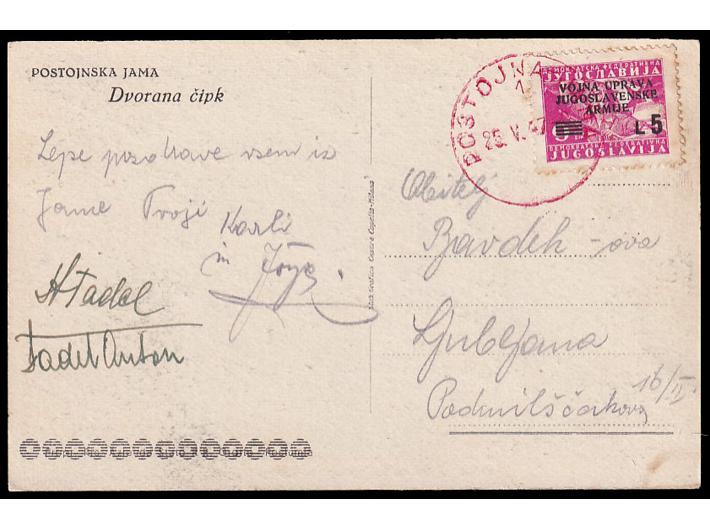 POSTOJNSKA JAMA
Dvorana čipk
Lepe pozdrave vsem iz
Jame Tvoji Karli
in
Štadel
Anton
POSTOJNA
1
25. V. 47
ЈУГОСЛАВИЈА
VOJNA UPRAVA
JUGOSLAVENSKE
ARMIJE
L 5
JUGOSLAVIJA
Obitelj
Bavdek - ova
Ljubljana
16/II
Podmilščakova